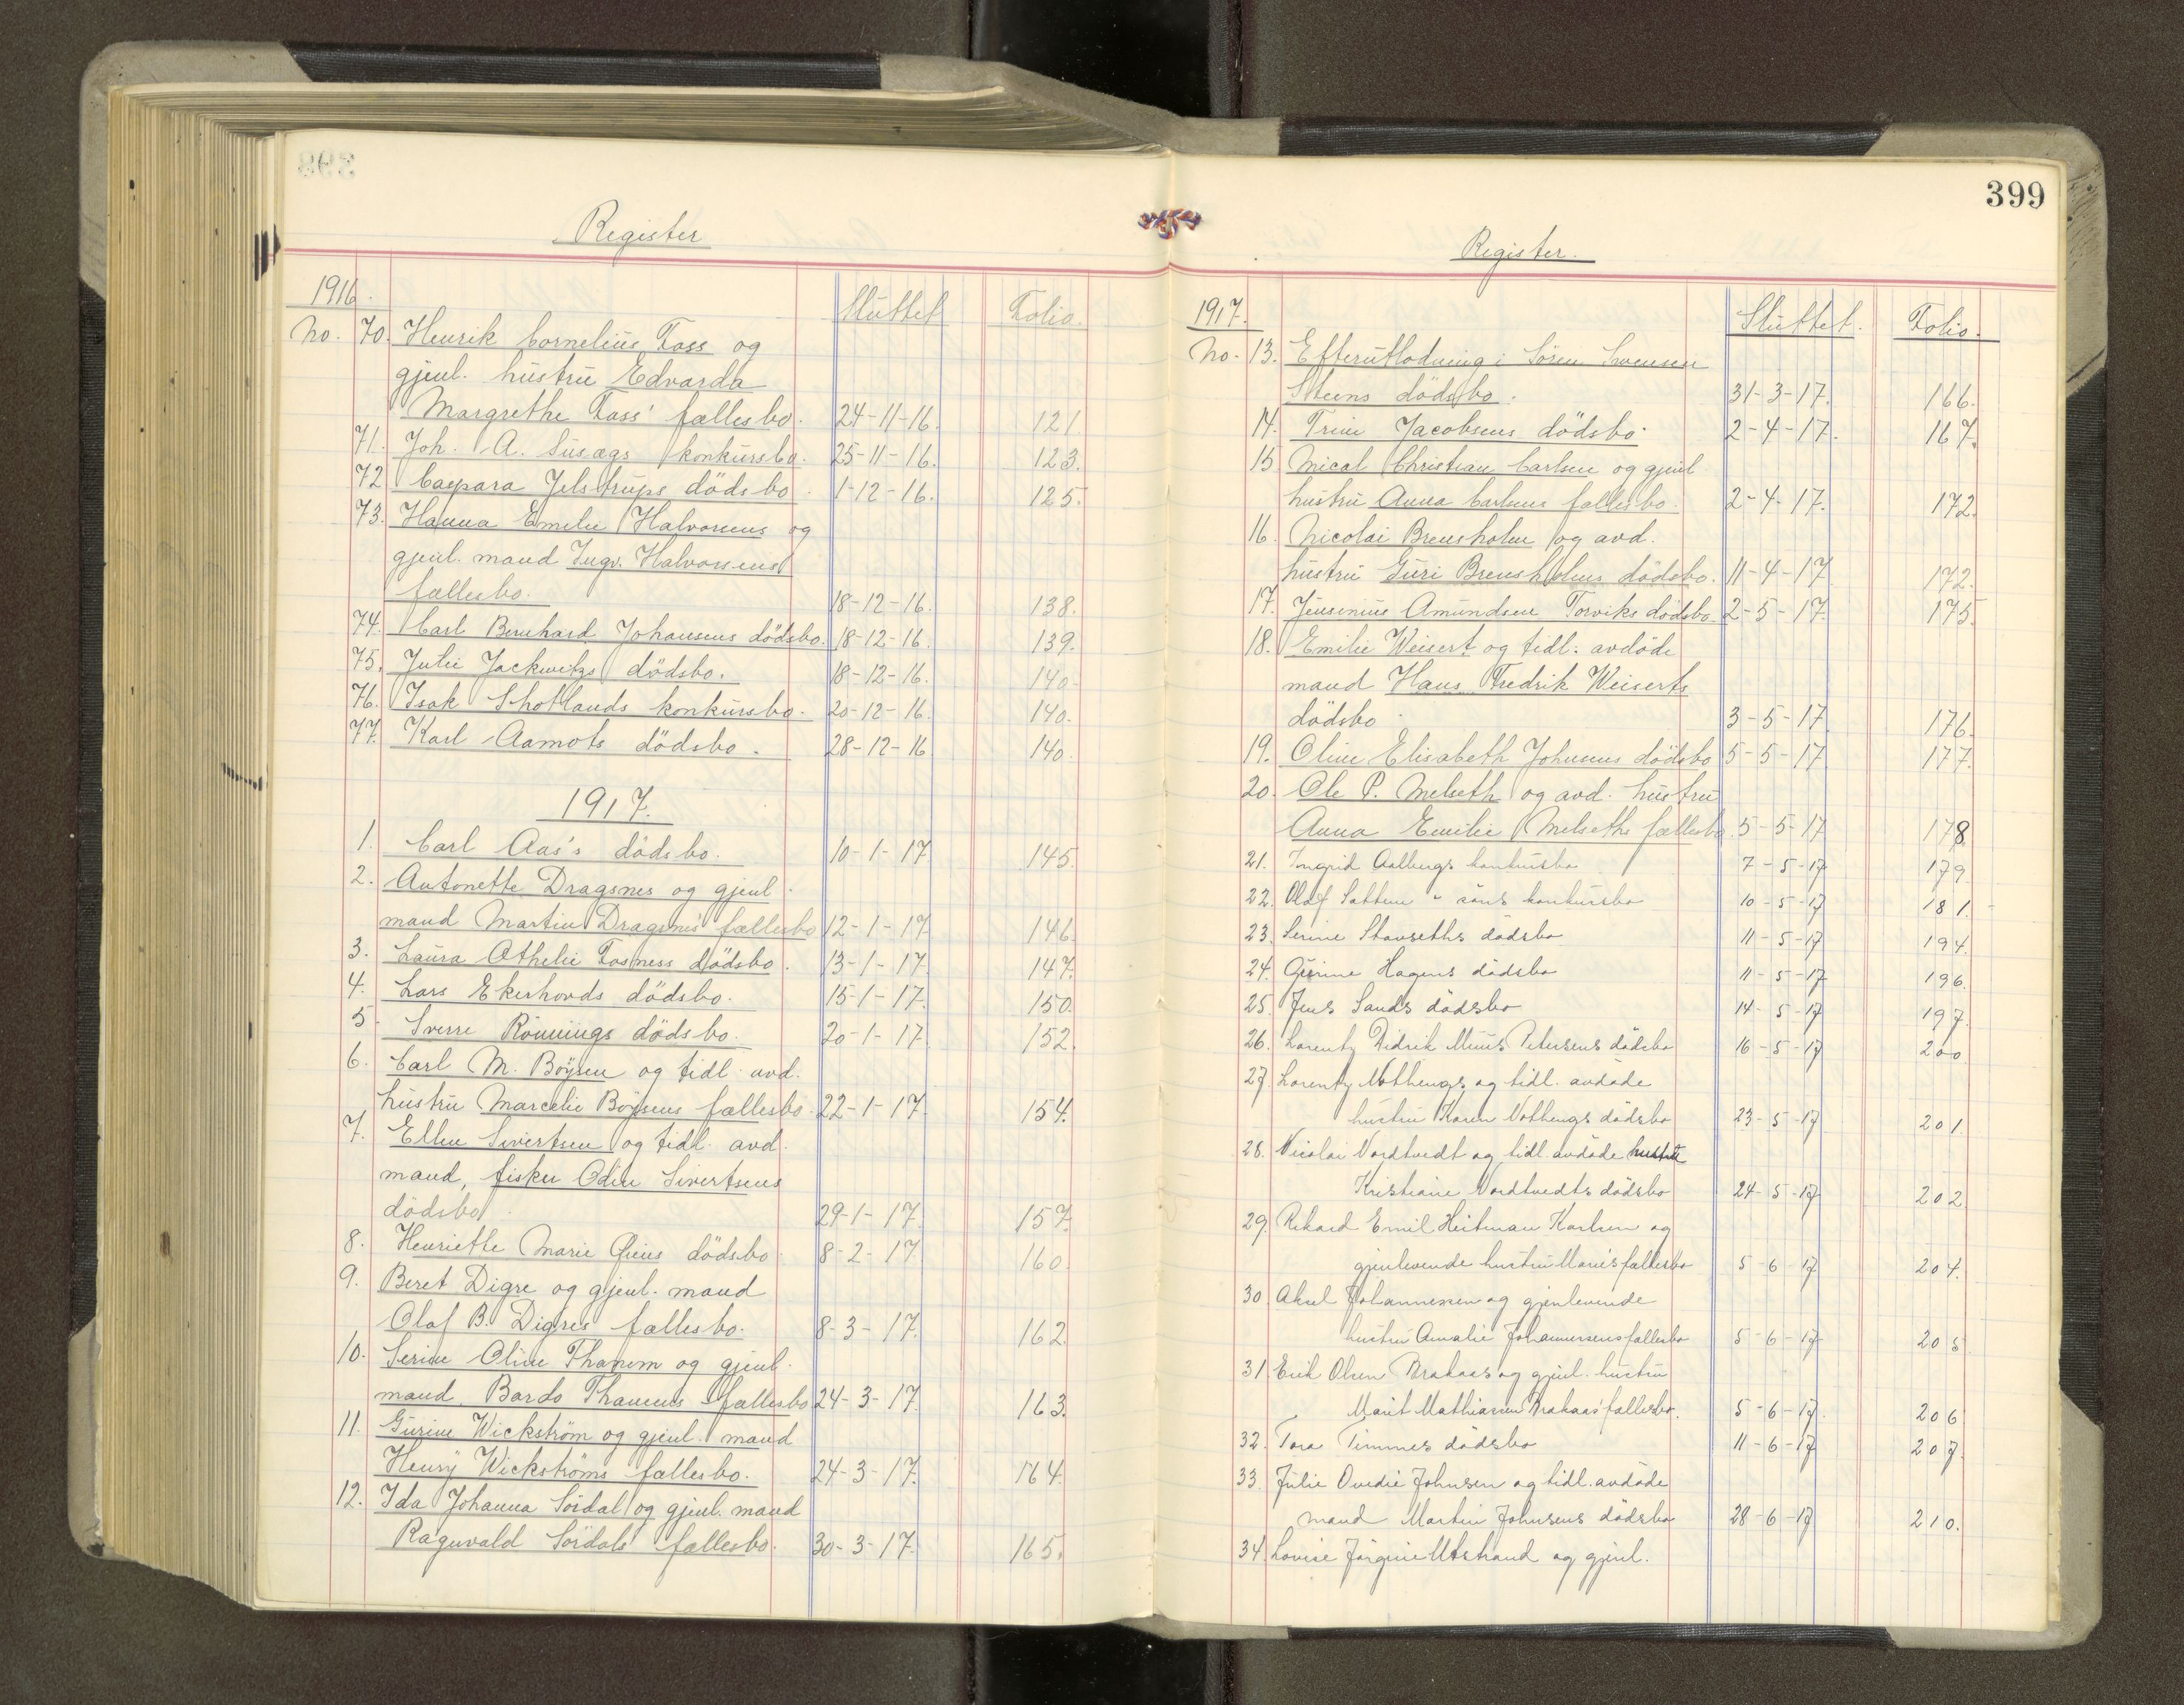 Register
1916.
Sluttet
Folio.
No. 70. Henrik Cornelius Foss og
gjenl. hustru Edvarda
Margrethe Foss' fællesbo. 24-11-16. 121.
71. Joh. A. Susægs konkursbo. 25-11-16. 123.
72 Caspara Jelstrups dödsbo. 1-12-16. 125.
73. Hanna Emelie Halvorsens og
gjenl. mand Ingv. Halvorsens
fællesbo. 18-12-16. 138.
74. Carl Bernhard Johansens dödsbo. 18-12-16. 139.
75. Julie Jackwitzs dödsbo. 18-12-16. 140.
76. Isak Shotlands konkursbo. 20-12-16. 140.
77. Karl Aamots dödsbo. 28-12-16 140.
1917.
1. Carl Aas's dödsbo. 10-1-17. 145.
2. Antonette Dragsnes og gjenl.
mand Martin Dragsnes' fællesbo 12-1-17 146.
3. Laura Athelie Fosness dödsbo. 13-1-17. 147.
4. Lars Ekerhovds dödsbo. 15-1-17. 150.
5 Sverre Rönnings dödsbo. 20-1-17. 152.
6. Carl M. Böysen og tidl. avd.
hustru Marcelie Böysens fællesbo. 22-1-17. 154.
7. Ellen Sivertsen og tidl. avd.
mand, fisker Odin Sivertsens
dödsbo. 29-1-17. 157.
8. Henriette Marie dödsbo 8-2-17. 160.
9. Beret Digre og gjenl. mand
Olaf B. Digres fællesbo. 8-3-17. 162.
10. Serine Oline Thanem og gjenl.
mand Bardo Thanems fællesbo 24-3-17. 163.
11. Gurine Wickström og gjenl. mand
Henry Wickströms fællesbo. 24-3-17. 164.
12. Ida Johanna Sördal og gjenl. mand
Ragnvald Sördals fællesbo. 30-3-17. 165.
399
Register.
1917.
Sluttet.
Folio.
No. 13. Efterutlodning i Sören Svensen
Steens dödsbo. 31-3-17. 166.
14. Trine Jacobsens dödsbo. 2-4-17. 167.
15 Mical Christian Carlsen og gjenl
hustru Anna Carlsens fællesbo. 2-4-17. 172.
16. Nicolai Brensholm og avd.
hustru Guri Brensholms dödsbo. 11-4-17 172.
17. Jensenius Amundsen Torviks dödsbo. 2-5-17. 175.
18. Emilie Weisert og tidl. avdöde
mand Hans Fredrik Weiserts
dödsbo. 3-5-17. 176.
19. Oline Elisabeth Johnsens dödsbo 5-5-17 177.
20. Ole P. Melseth og avd. hustru
Anna Emilie Melseths fællesbo. 5-5-17 178
21. Ingrid Aalbergs konkursbo 7-5-17 179.
22. Olaf Sattem - konkursbo 10-5-17 181.
23. Serine Stavseths dödsbo 11-5-17 194.
24. Gurine Hagens dödsbo 11-5-17 196.
25. Jens Sands dödsbo 14-5-17 197.
26. Lorentz Didrik Muus Petersens dödsbo 16-5-17 200
27. Lorentz Nothengs og tidl. avdöde
hustru Karen Nothengs dödsbo 23-5-17 201.
28. Nicolai Nordtvedt og tidl. avdöde hustru
Kristiane Nordtvedts dödsbo 24-5-17 202
29. Rikard Emil Heitman Karlsen og
gjenlevende hustru Marie's fællesbo 5-6-17 204.
30. Aksel Johannessen og gjenlevende
hustru Amalie Johannessens fællesbo 5-6-17 205
31 Erik Olsen Brakaas og gjenl. hustru
Marit Mathiasen Brakaas' fællesbo. 5-6-17. 206
32. Tora Timmes dödsbo 11-6-17 207.
33. Julie Ovedie Johnsen og tidl. avdöde
mand Martin Johnsens dödsbo 28-6-17 210.
34. Lovise Jörgine Utstrand og gjenl.